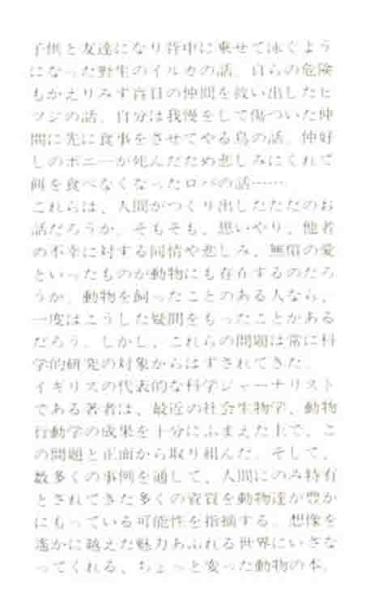 子供と友達になり背中に乗せて泳ぐよう
になった野生のイルカの話。自らの危険
もかえりみず盲目の仲間を救い出したヒ
ツジの話。自分は我慢をして傷ついた仲
間に先に食事をさせてやる鳥の話。仲好
しのポニーが死んだため悲しみにくれて
餌を食べなくなったロバの話……
これらは、人間がつくり出したただのお
話だろうか。そもそも、思いやり、他者
の不幸に対する同情や悲しみ、無償の愛
といったものが動物にも存在するのだろ
うか。動物を飼ったことのある人なら、
一度はこうした疑問をもったことがある
だろう。しかし、これらの問題は常に科
学的研究の対象からはずされてきた。
イギリスの代表的な科学ジャーナリスト
である著者は、最近の社会生物学、動物
行動学の成果を十分にふまえた上で、こ
の問題と正面から取り組んだ。そして、
数多くの事例を通して、人間にのみ特有
とされてきた多くの資質を動物達が豊か
にもっている可能性を指摘する。想像を
遥かに越えた魅力あふれる世界にいざな
ってくれる、ちょっと変った動物の本。